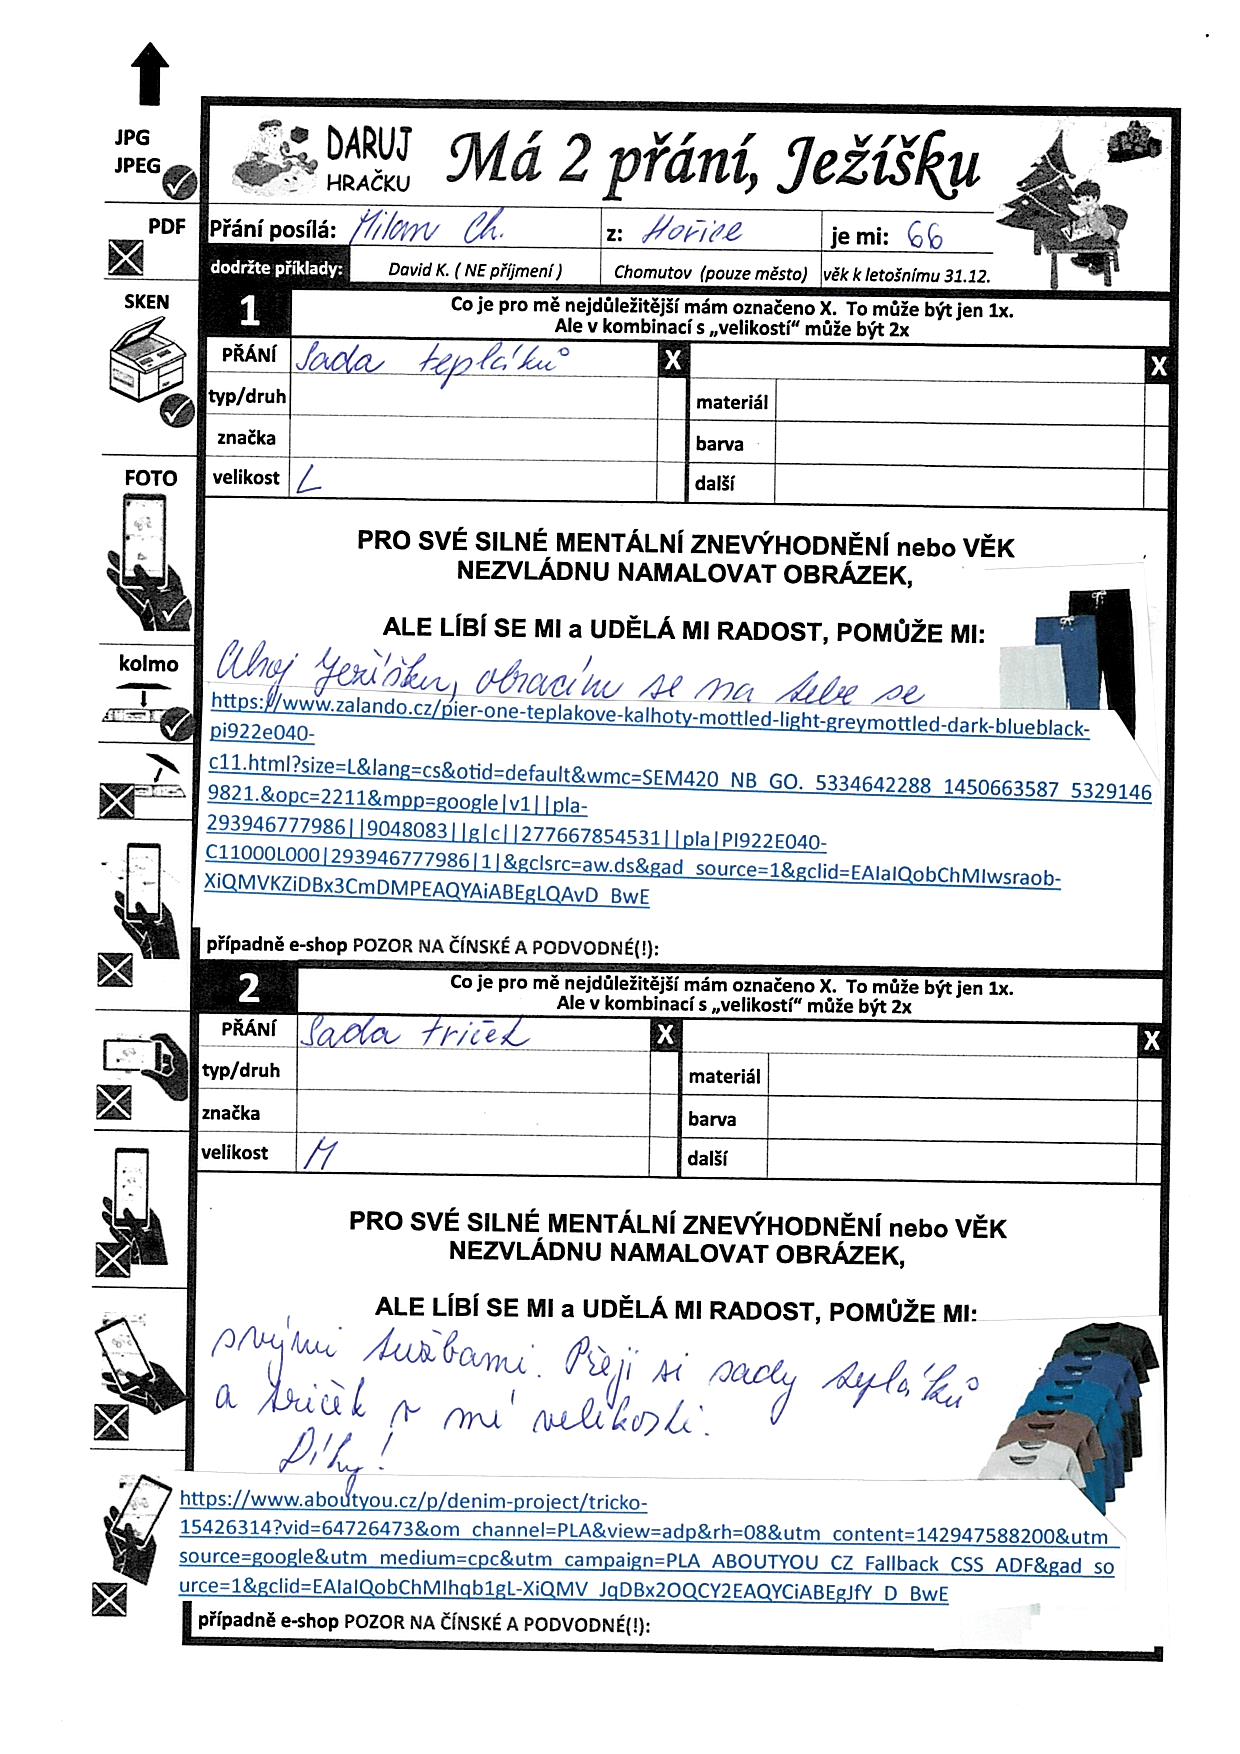 JPG
JPEG
PDF
SKEN
FOTO
kolmo
DARUJ
HRAČKU
Má 2 přání, Ježíšku
Přání posílá: Milan Ch. z: Hořice je mi: 66
dodržte příklady: David K. ( NE příjmení ) Chomutov (pouze město) věk k letošnímu 31.12.
1
Co je pro mě nejdůležitější mám označeno X. To může být jen 1x.
Ale v kombinací s „velikostí“ může být 2x
PŘÁNÍ Sada tepláků X X
typ/druh materiál
značka barva
velikost L další
PRO SVÉ SILNÉ MENTÁLNÍ ZNEVÝHODNĚNÍ nebo VĚK
NEZVLÁDNU NAMALOVAT OBRÁZEK,
ALE LÍBÍ SE MI a UDĚLÁ MI RADOST, POMŮŽE MI:
Ahoj Ježíšku, obracím se na tebe se
https://www.zalando.cz/pier-one-teplakove-kalhoty-mottled-light-greymottled-dark-blueblack-
pi922e040-
c11.html?size=L&lang=cs&otid=default&wmc=SEM420_NB_GO._5334642288_1450663587_5329146
9821.&opc=2211&mpp=google|v1||pla-
293946777986||9048083||g|c||277667854531||pla|PI922E040-
C11000L000|293946777986|1|&gclsrc=aw.ds&gad_source=1&gclid=EAIaIQobChMIwsraob-
XiQMVKZiDBx3CmDMPEAQYAiABEgLQAvD_BwE
případně e-shop POZOR NA ČÍNSKÉ A PODVODNÉ(!):
2
Co je pro mě nejdůležitější mám označeno X. To může být jen 1x.
Ale v kombinací s „velikostí“ může být 2x
PŘÁNÍ Sada triček X X
typ/druh materiál
značka barva
velikost M další
PRO SVÉ SILNÉ MENTÁLNÍ ZNEVÝHODNĚNÍ nebo VĚK
NEZVLÁDNU NAMALOVAT OBRÁZEK,
ALE LÍBÍ SE MI a UDĚLÁ MI RADOST, POMŮŽE MI:
svými tužbami. Přeji si sady tepláků
a triček v mé velikosti.
Díky!
https://www.aboutyou.cz/p/denim-project/tricko-
15426314?vid=64726473&om_channel=PLA&view=adp&rh=08&utm_content=142947588200&utm_
source=google&utm_medium=cpc&utm_campaign=PLA_ABOUTYOU_CZ_Fallback_CSS_ADF&gad_so
urce=1&gclid=EAIaIQobChMIhqb1gL-XiQMV_JqDBx2OQCY2EAQYCiABEgJfY_D_BwE
případně e-shop POZOR NA ČÍNSKÉ A PODVODNÉ(!):